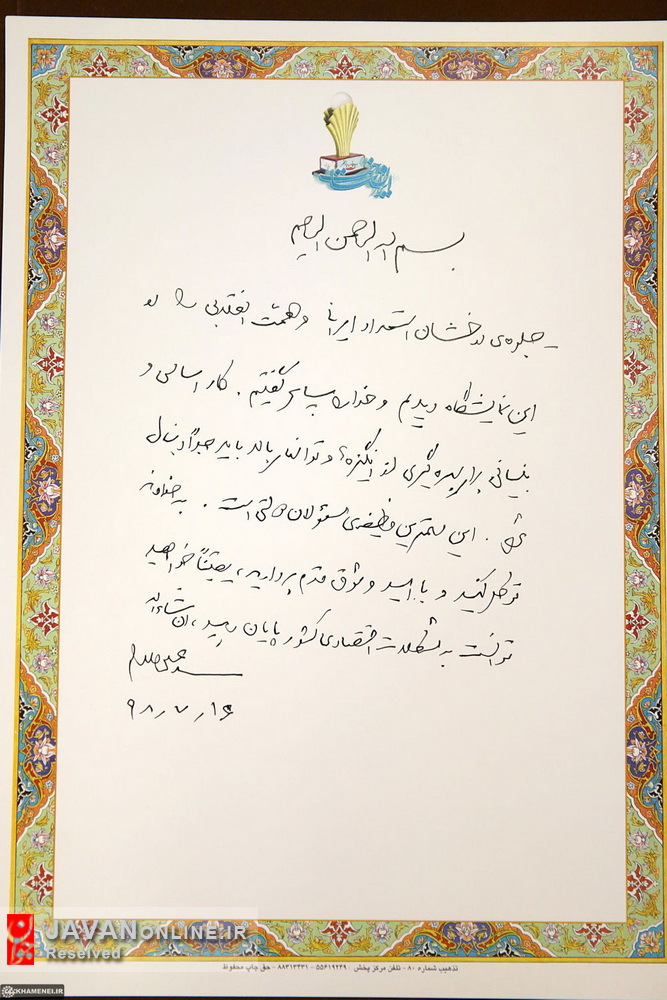 بسم الله الرحمن الرحیم
جلوه‌ی درخشان استعداد ایرانی و همّت انقلابی را در
این نمایشگاه دیدم و خدا را سپاس گفتم. کار اساسی و
بنیانی برای بهره‌گیری از این انگیزه و توانائی بالا باید جداً دنبال
شود. این مهمترین وظیفه‌ی مسؤولان دولتی است. به خداوند
توکل کنید و با امید و وثوق قدم بردارید، یقیناً خواهید
توانست به مشکلات اقتصادی کشور پایان دهید، ان‌شاءالله
سیدعلی خامنه‌ای
۹۸٫۷٫۱۶
JAVANONLINE.IR
Reserved
KHAMENEI.IR
تذهیب شماره ۸۰ - تلفن مرکز پخش : ۵۵۶۱۹۲۴۹ - ۸۸۳۱۳۴۳۱ - حق چاپ محفوظ